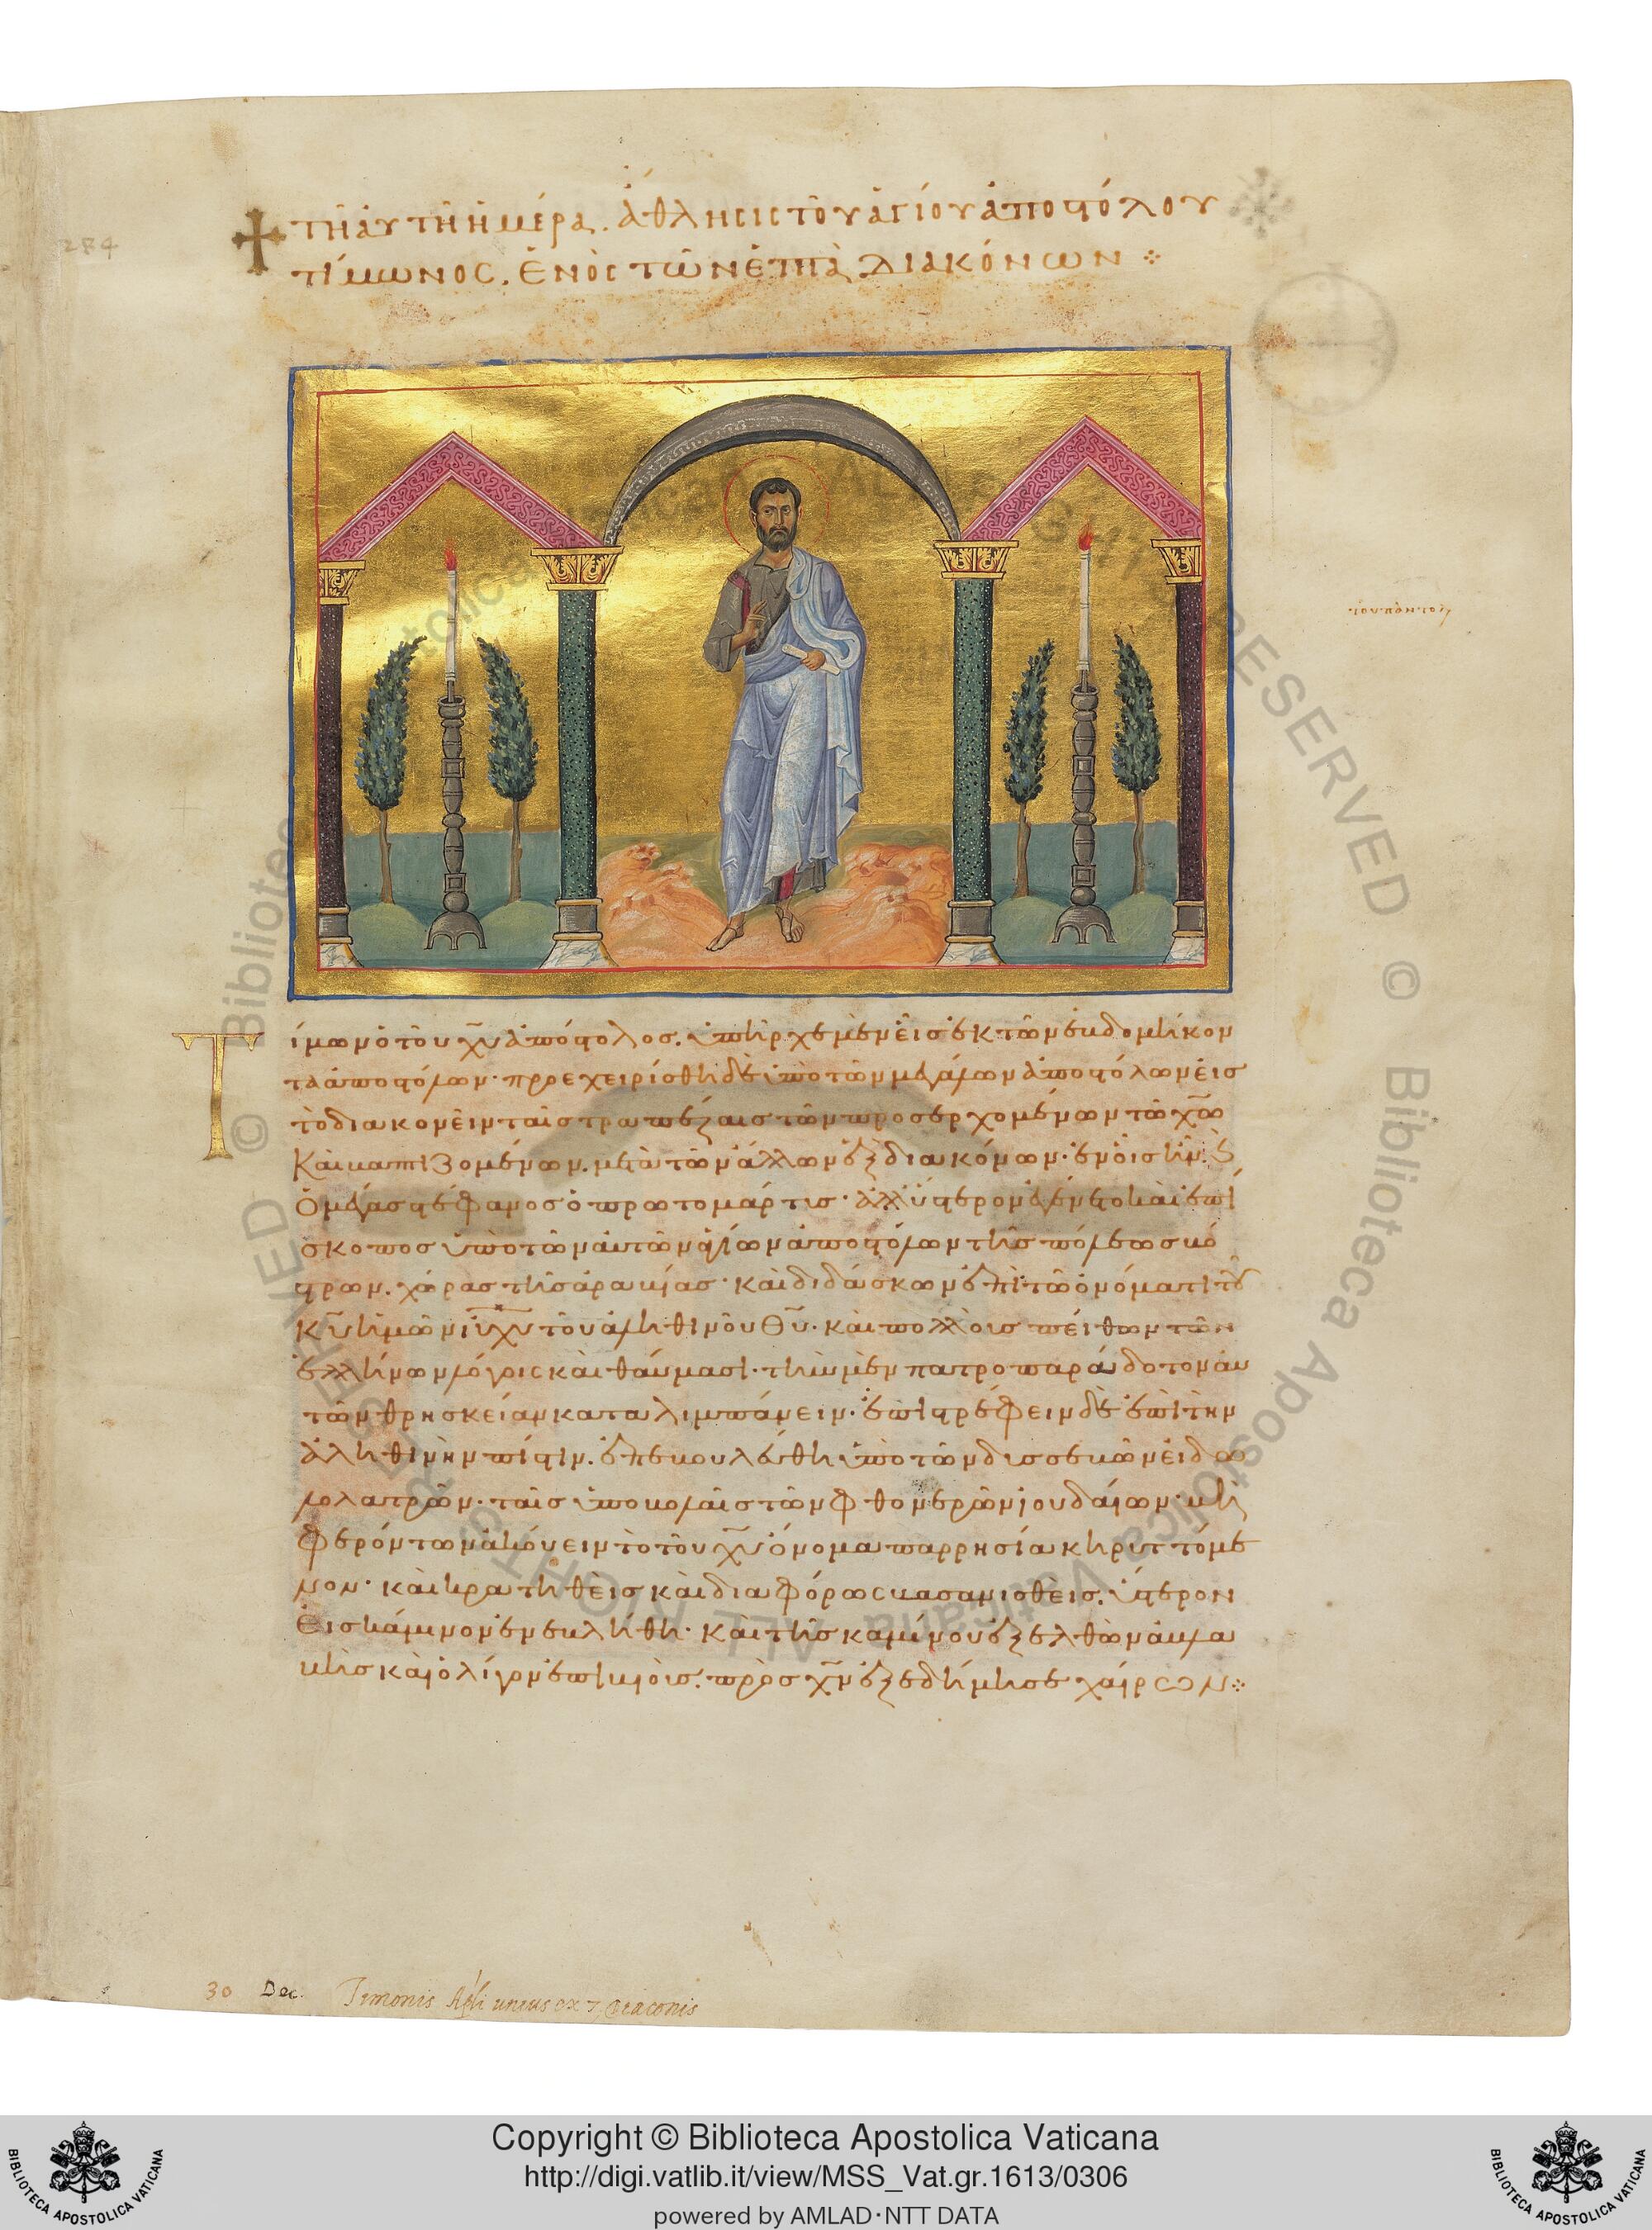 284
✢ τῆ αὐτῆ ἡμέρα. ἄθλησις τοῦ ἁγίου ἀποστόλου
τίμωνος. ἑνὸς τῶν ἑπτὰ διακόνων ⁘
τοῦ παντολέοντος
Τίμων ὁ τοῦ χ̅υ̅ ἀπόστολος. ὑπῆρχε μὲν εἷς ἐκ τῶν ἑβδομήκον
τα ἀποστόλων· προεχειρίσθη δὲ ὑπὸ τῶν μεγάλων ἀποστόλων εἰς
τὸ διακονεῖν ταῖς τραπέζαις τῶν προσερχομένων τῶ χ̅ω̅
καὶ βαπτιζομένων. μετὰ τῶν ἄλλων ἓξ διακόνων· ἐν οἷς ἦν ϛ
ὁ μέγας στέφανος ὁ πρωτομάρτυς· ἀλλ' ὕστερον ἐγένετο καὶ ἐπί
σκοπος ὑπὸ τῶν αὐτῶν ἁγίων ἀποστόλων τῆς πόλεως βό
στρων. χώρας τῆς ἀραβίας· καὶ διδάσκων ἐπὶ τῶ ὀνόματι τοῦ
κ̅υ̅ ἡμῶν ι̅υ̅ χ̅υ̅ τοῦ ἀληθινοῦ θ̅υ̅· καὶ πολλοὺς πείθων τῶν
ἑλλήνων λόγοις καὶ θαύμασι· τὴν μὲν πατροπαράδοτον αὐ
τῶν θρησκείαν καταλιμπάνειν· ἐπιστρέφειν δὲ ἐπὶ τὴν
ἀληθινὴν πίστιν. ἐπεβουλεύθη ὑπὸ τῶν δυσσεβῶν εἰδω
λολατρῶν· ταῖς ὑποβολαῖς τῶν φθονερῶν ἰουδαίων· μὴ
φερόντων ἀκούειν τὸ τοῦ χ̅υ̅ ὄνομα παρρησία κηρυττόμε
νον· καὶ κρατηθεὶς καὶ διαφόρως βασανισθεὶς. ὕστερον
εἰς κάμινον ἐνεβλήθη· καὶ τῆς καμίνου ἐξελθὼν ἀβλα
βὴς καὶ ὀλίγον ἐπιβιοὺς. πρὸς χ̅ν̅ ἐξεδήμησε χαίρων ⁘
30 Dec. Timonis Apli unius ex 7 diaconis
© Biblioteca Apostolica Vaticana ALL RIGHTS RESERVED © Biblioteca Apostolica Vaticana ALL RIGHTS RESERVED
Copyright © Biblioteca Apostolica Vaticana
http://digi.vatlib.it/view/MSS_Vat.gr.1613/0306
powered by AMLAD·NTT DATA
BIBLIOTECA APOSTOLICA VATICANA
BIBLIOTECA APOSTOLICA VATICANA